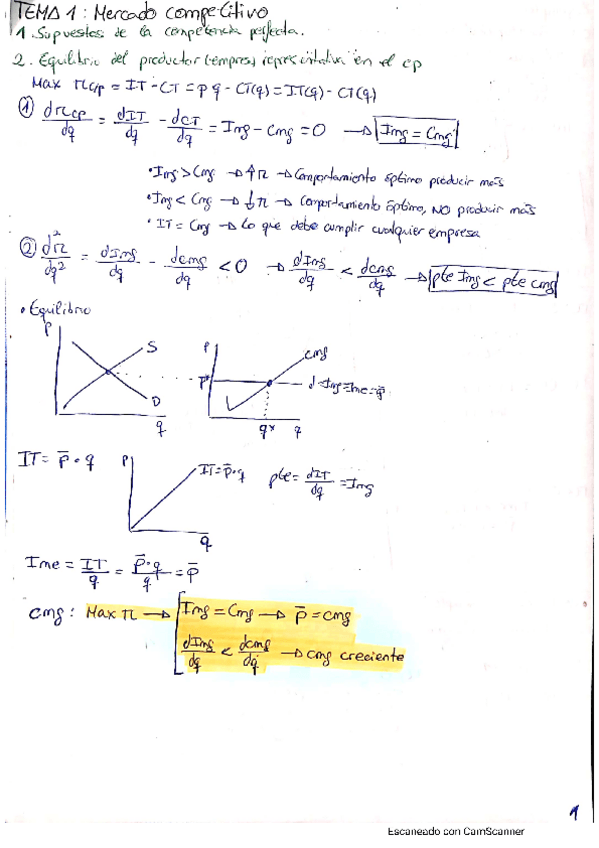 TEMA 1: Mercado competitivo
1. Supuestos de la competencia perfecta.
2. Equilibrio del productor (empresa representativa) en el cp
Max πcp = IT - CT = p q - CT(q) = IT(q) - CT(q)
① dπcp/dq = dIT/dq - dCT/dq = Img - Cmg = 0 → Img = Cmg
• Img > Cmg → ↑π → Comportamiento óptimo producir más
• Img < Cmg → ↓π → Comportamiento óptimo, NO producir más
• IT = Cmg → Lo que debe cumplir cualquier empresa
② d²π/dq² = dImg/dq - dcmg/dq < 0 → dImg/dq < dcmg/dq → pte Img < pte cmg
• Equilibrio
P S D q
P P* cmg d=Img=Ime=p̄ q* q
IT = p̄ · q
P IT = p̄·q q
pte = dIT/dq = Img
Ime = IT/q = p̄·q/q = p̄
cmg: Max π → Img = Cmg → p̄ = cmg
dImg/dq < dcmg/dq → cmg creciente
1
Escaneado con CamScanner